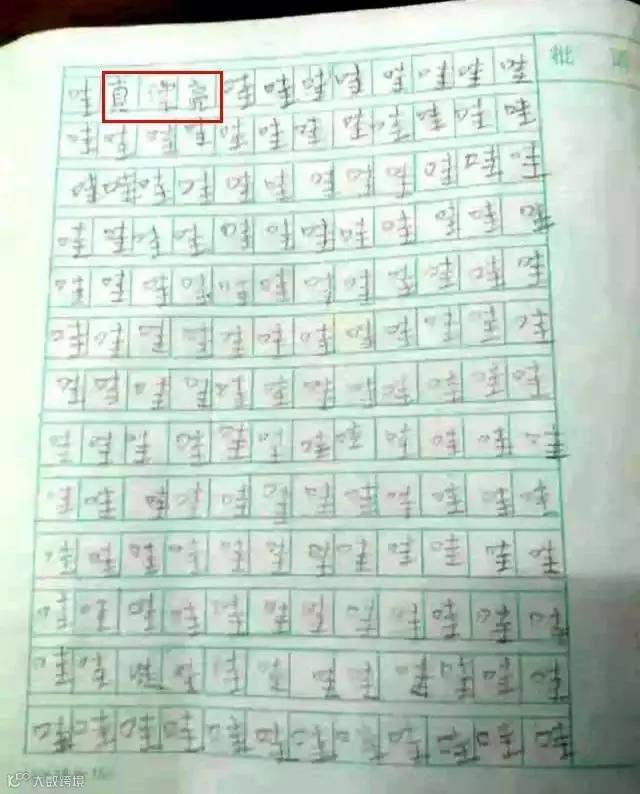 哇真漂亮哇哇哇哇哇哇哇哇
哇哇哇哇哇哇哇哇哇哇哇哇
哇哇哇哇哇哇哇哇哇哇哇哇
哇哇哇哇哇哇哇哇哇哇哇哇
哇哇哇哇哇哇哇哇哇哇哇哇
哇哇哇哇哇哇哇哇哇哇哇哇
哇哇哇哇哇哇哇哇哇哇哇哇
哇哇哇哇哇哇哇哇哇哇哇哇
哇哇哇哇哇哇哇哇哇哇哇哇
哇哇哇哇哇哇哇哇哇哇哇哇
哇哇哇哇哇哇哇哇哇哇哇哇
哇哇哇哇哇哇哇哇哇哇哇哇
哇哇哇哇哇哇哇哇哇哇哇哇
批
大数跨境